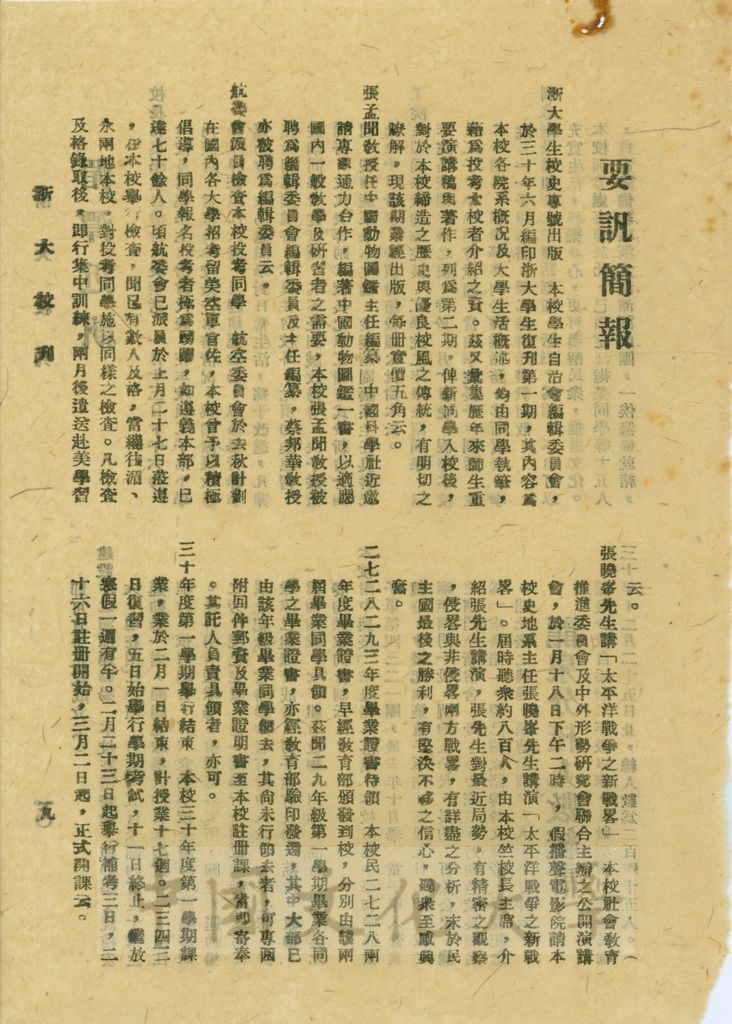 要訊簡報
浙大學生校史專號出版　本校學生自治會編輯委員會，
於三十年六月編印浙大學生復刊第一期，其內容爲
本校各院系概況及大學生活概述，均由同學執筆，
藉爲投考本校者介紹之資。茲又彙集歷年來師生重
要演講稿與著作，列爲第二期。俾新同學入校後，
對於本校締造之歷史與優良校風之傳統，有明切之
瞭解，現該期業經出版，每册實價五角云。
張孟聞教授任中國動物圖鑑主任編纂　中國科學社近邀
請專家通力合作，編著中國動物圖鑑一書，以適應
國內一般教學及研習者之需要，本校張孟聞教授被
聘爲編輯委員會編輯委員及主任編纂，蔡邦華教授
亦被聘爲編輯委員云。
航委會派員檢查本校投考同學　航空委員會於去秋計劃
在國內各大學招考留美空軍官佐，本校曾予以積極
倡導，同學報名投考者極爲踴躍，如遵義本部，已
達七十餘人。頃航委會已派員於上月二十七日蒞遵
，在本校舉行檢查，聞已有數人及格，當繼往湄、
永兩地本校，對投考同學施以同樣之檢查。凡檢查
及格錄取後，即行集中訓練，兩月後遣送赴美學習
云。
張曉峯先生講「太平洋戰爭之新戰畧」　本校社會教育
推進委員會及中外形勢研究會聯合主辦之公開演講
會，於一月十八日下午二時，假播聲電影院請本
校史地系主任張曉峯先生講演「太平洋戰爭之新戰
畧」。屆時聽衆約八百人，由本校竺校長主席，介
紹張先生講演，張先生對最近局勢，有精密之觀察
，侵畧與非侵畧兩方戰畧，有詳盡之分析，末於民
主國最後之勝利，有堅決不移之信心，聽衆至感興
奮。
二七二八二九三年度畢業證書待領　本校民二七二八兩
年度畢業證書，早經教育部頒發到校，分別由該兩
屆畢業同學具領。茲聞二九年級第一學期畢業各同
學之畢業證書，亦經教育部驗印發還，其中大部已
由該年級畢業同學領去，其尚未行領去者，可專函
附回件郵資及畢業證明書至本校註册課，當即寄奉
。其託人員責具領者，亦可。
三十年度第一學期舉行結束　本校三十年度第一學期課
業，業於二月一日結束，計授業十七週。二三四三
日復習，五日始舉行學期考試，十一日終止，繼放
寒假一週有半。二月二十三日起舉行補考三日，二
十六日註册開始，三月二日起，正式開課云。
浙大校刊
九